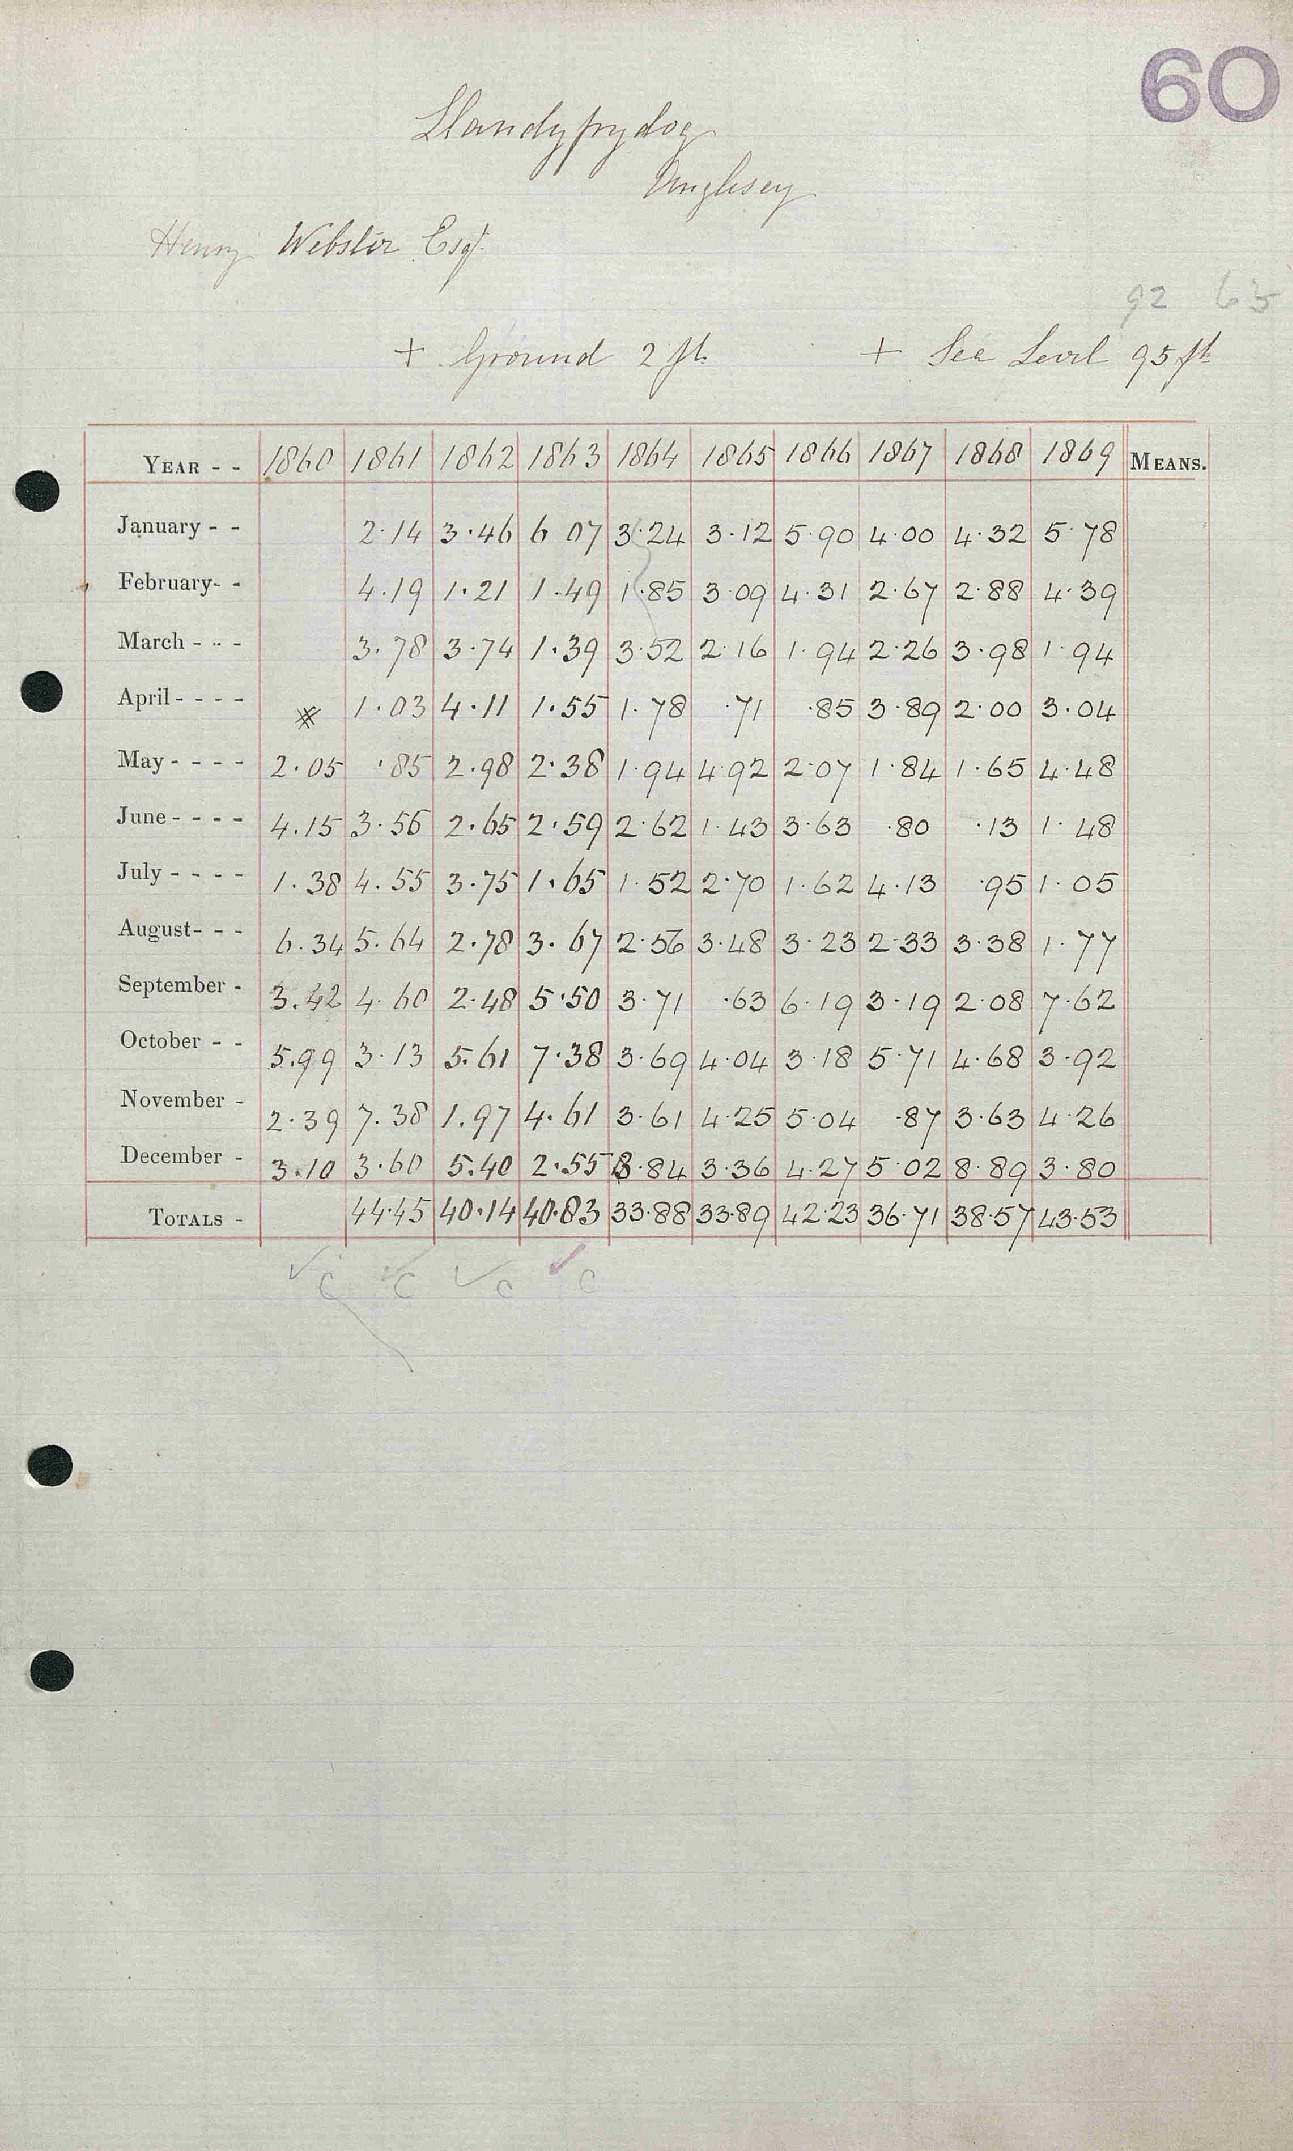 60
Llandyfrydog
Anglesey
Henry Webster Esqr.
92 65
+ Ground 2 ft. + Sea Level 95 ft
YEAR - - 1860 1861 1862 1863 1864 1865 1866 1867 1868 1869 MEANS.
January - - 2.14 3.46 6 07 3.24 3.12 5.90 4.00 4.32 5.78
February- - 4.19 1.21 1.49 1.85 3.09 4.31 2.67 2.88 4.39
March - - - 3.78 3.74 1.39 3.52 2.16 1.94 2.26 3.98 1.94
April - - - - * 1.03 4.11 1.55 1.78 .71 .85 3.89 2.00 3.04
May - - - - 2.05 .85 2.98 2.38 1.94 4.92 2.07 1.84 1.65 4.48
June - - - - 4.15 3.56 2.65 2.59 2.62 1.43 3.63 .80 .13 1.48
July - - - - 1.38 4.55 3.75 1.65 1.52 2.70 1.62 4.13 .95 1.05
August- - - 6.34 5.64 2.78 3.67 2.56 3.48 3.23 2.33 3.38 1.77
September - 3.42 4.60 2.48 5.50 3.71 .63 6.19 3.19 2.08 7.62
October - - 5.99 3.13 5.61 7.38 3.69 4.04 3.18 5.71 4.68 3.92
November - 2.39 7.38 1.97 4.61 3.61 4.25 5.04 .87 3.63 4.26
December - 3.10 3.60 5.40 2.55 3.84 3.36 4.27 5.02 8.89 3.80
TOTALS - 44.45 40.14 40.83 33.88 33.89 42.23 36.71 38.57 43.53
✓ c ✓ c ✓ c ✓ c